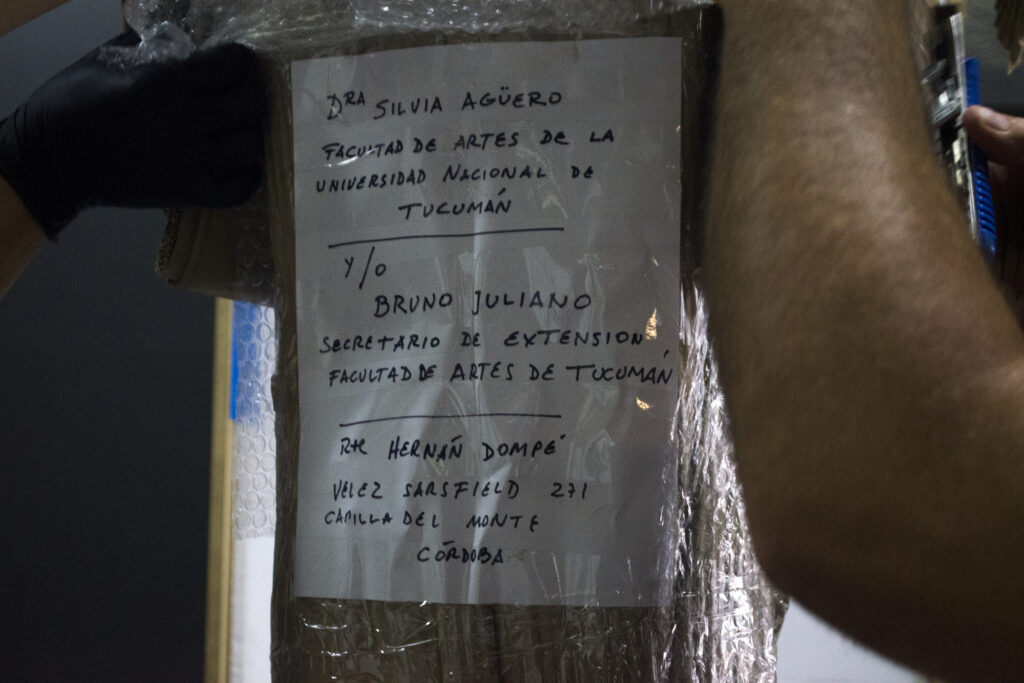 DRA SILVIA AGÜERO
FACULTAD DE ARTES DE LA
UNIVERSIDAD NACIONAL DE
TUCUMÁN
Y/O
BRUNO JULIANO
SECRETARIO DE EXTENSION
FACULTAD DE ARTES DE TUCUMÁN
HERNÁN DOMPÉ
VELEZ SARSFIELD 271
CAPILLA DEL MONTE
CÓRDOBA